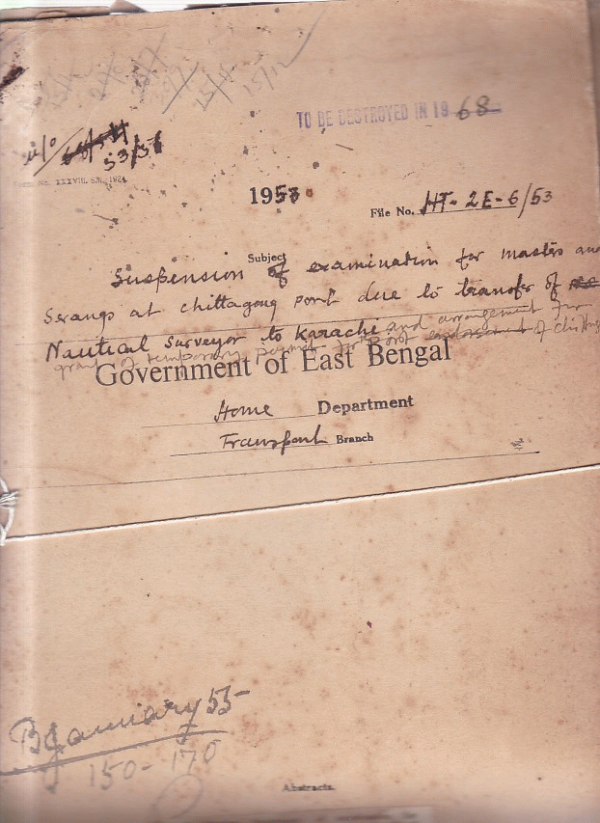 15/12
TO BE DESTROYED IN 1968
53/51
1953
File No. HT-2E-6/53
Subject
Suspension of examination for masters and
Serangs at Chittagong port due to transfer of
Nautical Surveyor to Karachi and arrangement for
grant of temporary permit for port endorsement of
Government of East Bengal
Home Department
Transport Branch
B January 55
150-170
Abstracts.